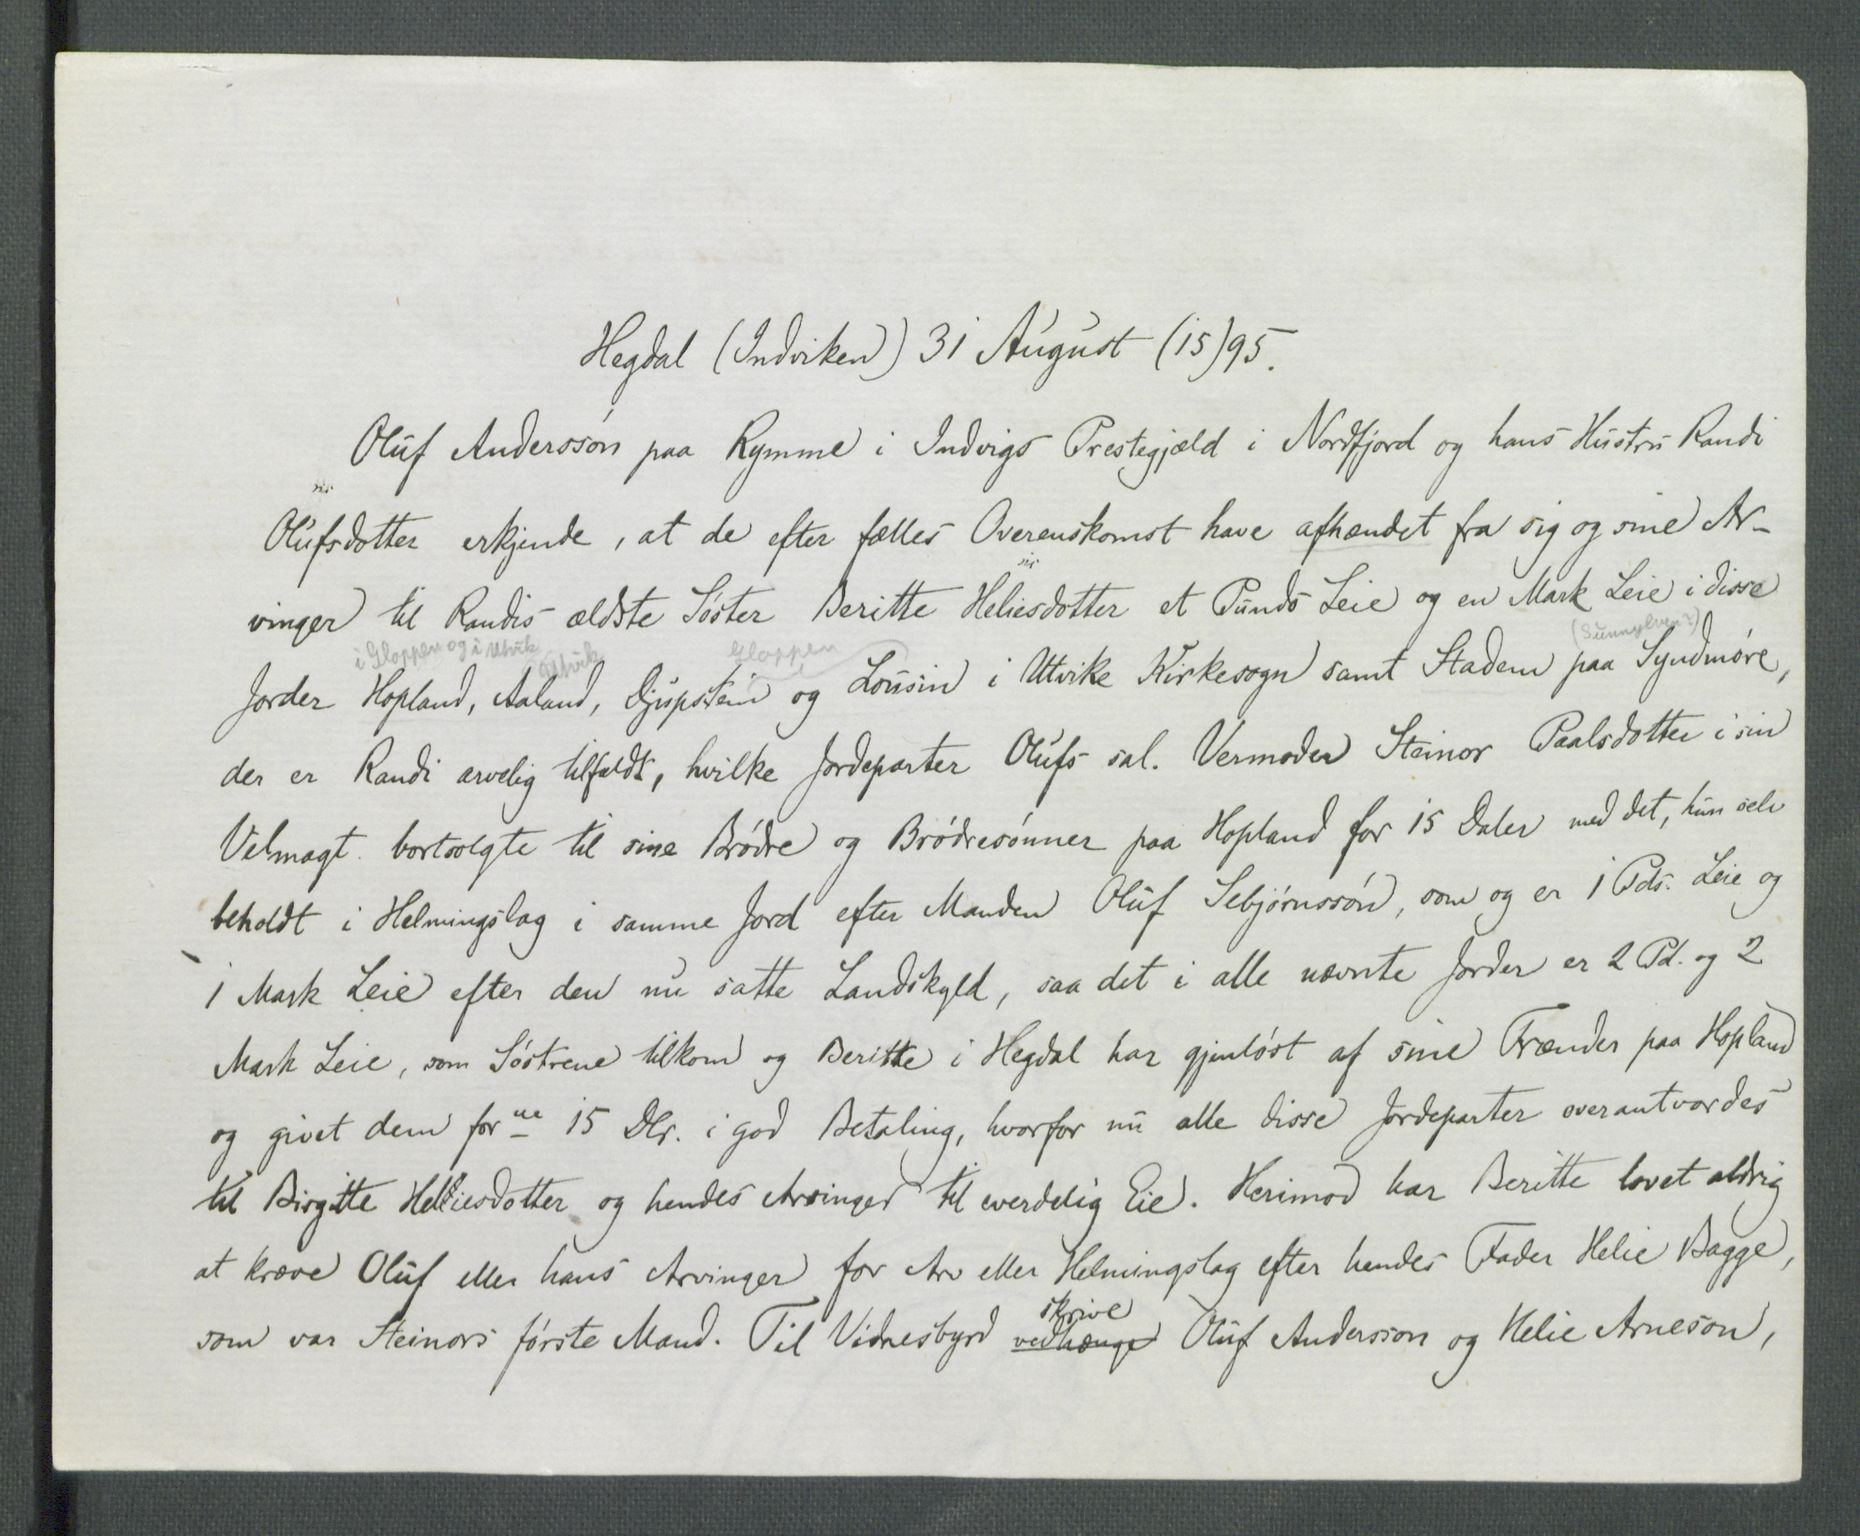 Hegdal (Indviken) 31 August (15)95.
Oluf Anderssón paa Rymme i Indvigs Prestegjæld i Nordfjord og hans Hustru Randi
Olufsdotter erkjende, at de efter fælles Overenskomst have afhændet fra sig og sine Ar-
vinger til Randis ældste Sóster Beritte Heliesdotter et Punds Leie og en Mark Leie i disse
i Gloppen og i Utvik Utvik Gloppen (Sunnylven?)
Jorder Hopland, Aaland, Djupstein og Lousin i Utvike Kirkesogn samt Stadem paa Syndmóre,
der er Randi arvelig tilfaldt, hvilke Jordeparter Olufs sal. Vermoder Steinor Paalsdotter i sin
Velmagt bortsolgte til sine Bródre og Bródresónner paa Hopland for 15 Daler med det, hun selv
beholdt i Helmingslag i samme Jord efter Manden Oluf Sebjórnssón, som og er 1 Pds. Leie og
1 Mark Leie efter den nu satte Landskyld, saa det i alle nævnte Jorder er 2 Pd. og 2
Mark Leie, som Sóstrene tilkom og Beritte i Hegdal har gjenlóst af sine Frænder paa Hopland
og givet dem for ne 15 Dlr. i god Betaling, hvorfor nu alle disse Jordeparter overantvordes
til Birgitte Helliesdotter og hendes Arvinger til everdelig Eie. Herimod har Beritte lovet aldrig
at kræve Oluf eller hans Arvinger for Arv eller Helmingslag efter hendes Fader Helie Bagge,
skrive
som var Steinors fórste Mand. Til Vidnesbyrd vedhænge Oluf Andersson og Helie Arneson,